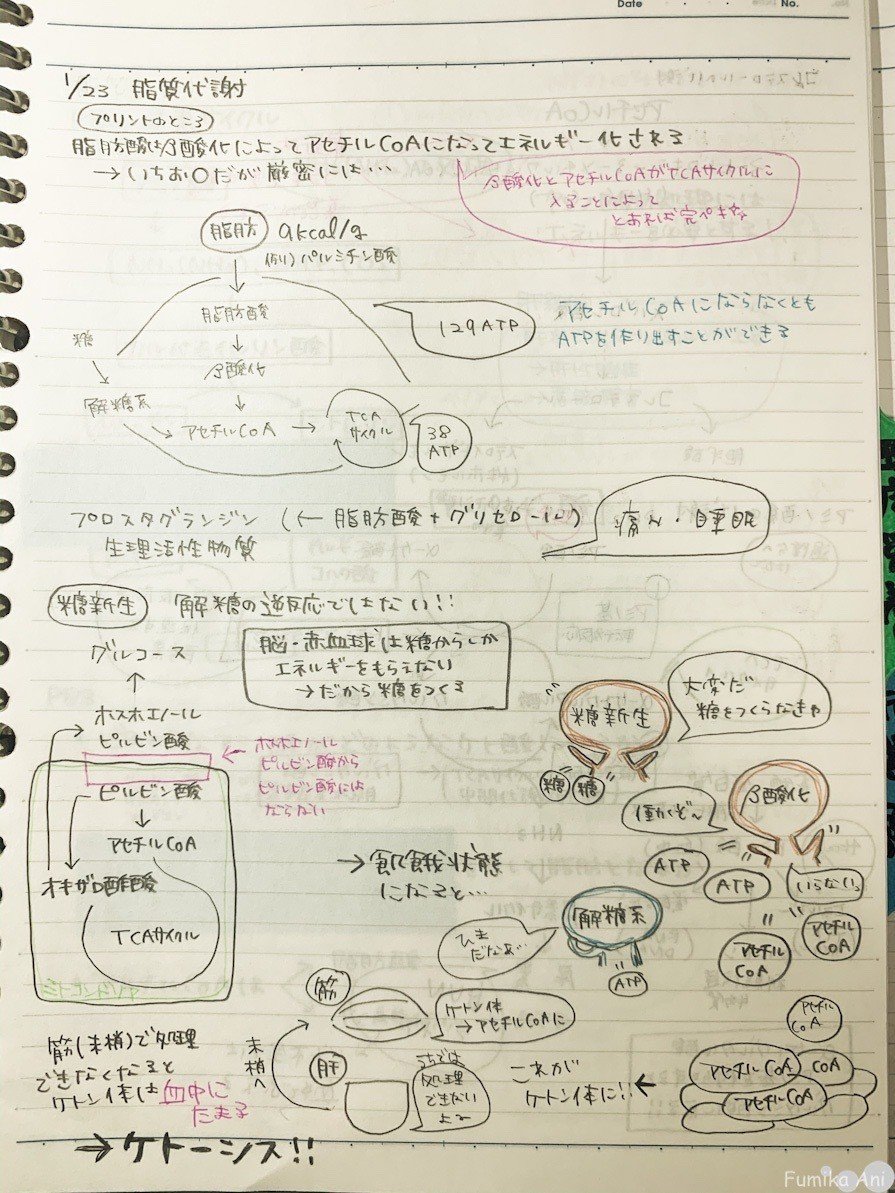 Date
No.
1/23 脂質代謝
プリントのところ
脂肪酸はβ酸化によってアセチルCoAになってエネルギー化される
→いちお○だが厳密には…
β酸化とアセチルCoAがTCAサイクルに
入ることによって
とあれば完ペキ
脂肪 9kcal/g
(例)パルミチン酸
脂肪酸
129ATP
アセチルCoAにならなくとも
ATPを作り出すことができる
糖
↓
β酸化
解糖系
アセチルCoA →
TCA
サイクル
38
ATP
プロスタグランジン (← 脂肪酸+グリセロール)
生理活性物質
痛み・睡眠
糖新生 解糖の逆反応ではない!!
脳・赤血球は糖からしか
エネルギーをもらえない
→だから糖をつくる
グルコース
↑
ホスホエノール
ピルビン酸
←ホスホエノール
ピルビン酸から
ピルビン酸には
ならない
ピルビン酸
↓
アセチルCoA
オキサロ酢酸
TCAサイクル
糖新生
大変だ
糖をつくらなきゃ
糖 糖
β酸化
働くぞ~
ATP
ATP
いらないっ
アセチル
CoA
アセチル
CoA
→飢餓状態
になると…
解糖系
ひま
だなぁ…
ATP
筋
ケトン体
→アセチルCoAに
末梢へ
肝
うちでは
処理
できない
よる
アセチル
CoA
アセチルCoA
CoA
アセチルCoA
これが
ケトン体に!! ←
筋(末梢)で処理
できなくなると
ケトン体は血中に
たまる
→ケトーシス!!
Fumika Ani